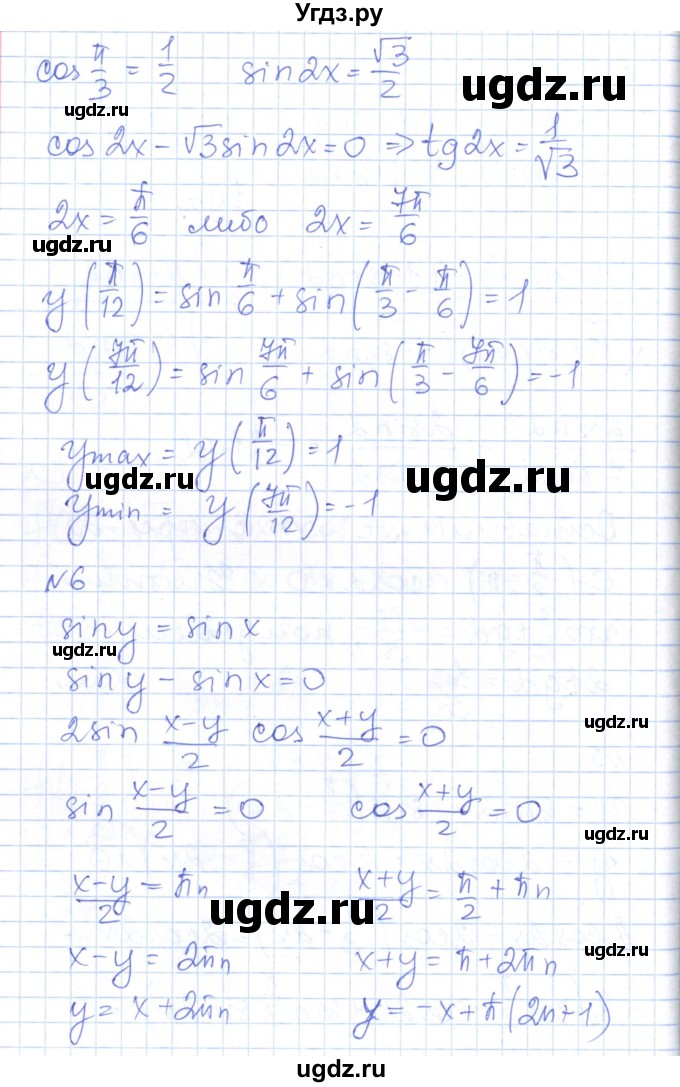 Угдз.ру
cos π/3 = 1/2   sin2x = √3/2
ugdz.ru
ugdz.ru
cos2x - √3sin2x = 0 => tg2x = 1/√3
2x = π/6 либо 2x = 7π/6
ugdz.ru
y(π/12) = sin π/6 + sin(π/3 - π/6) = 1
y(7π/12) = sin 7π/6 + sin(π/3 - 7π/6) = -1
ymax = y(π/12) = 1
ugdz.ru
ugdz.ru
ymin = y(7π/12) = -1
№6
siny = sinx
ugdz.ru
siny - sinx = 0
ugdz.ru
2sin (x-y)/2 cos (x+y)/2 = 0
sin (x-y)/2 = 0   cos (x+y)/2 = 0
ugdz.ru
(x-y)/2 = πn   (x+y)/2 = π/2 + πn
ugdz.ru
ugdz.ru
x-y = 2πn   x+y = π+2πn
y = x+2πn   y = -x+π(2n+1)
ugdz.ru